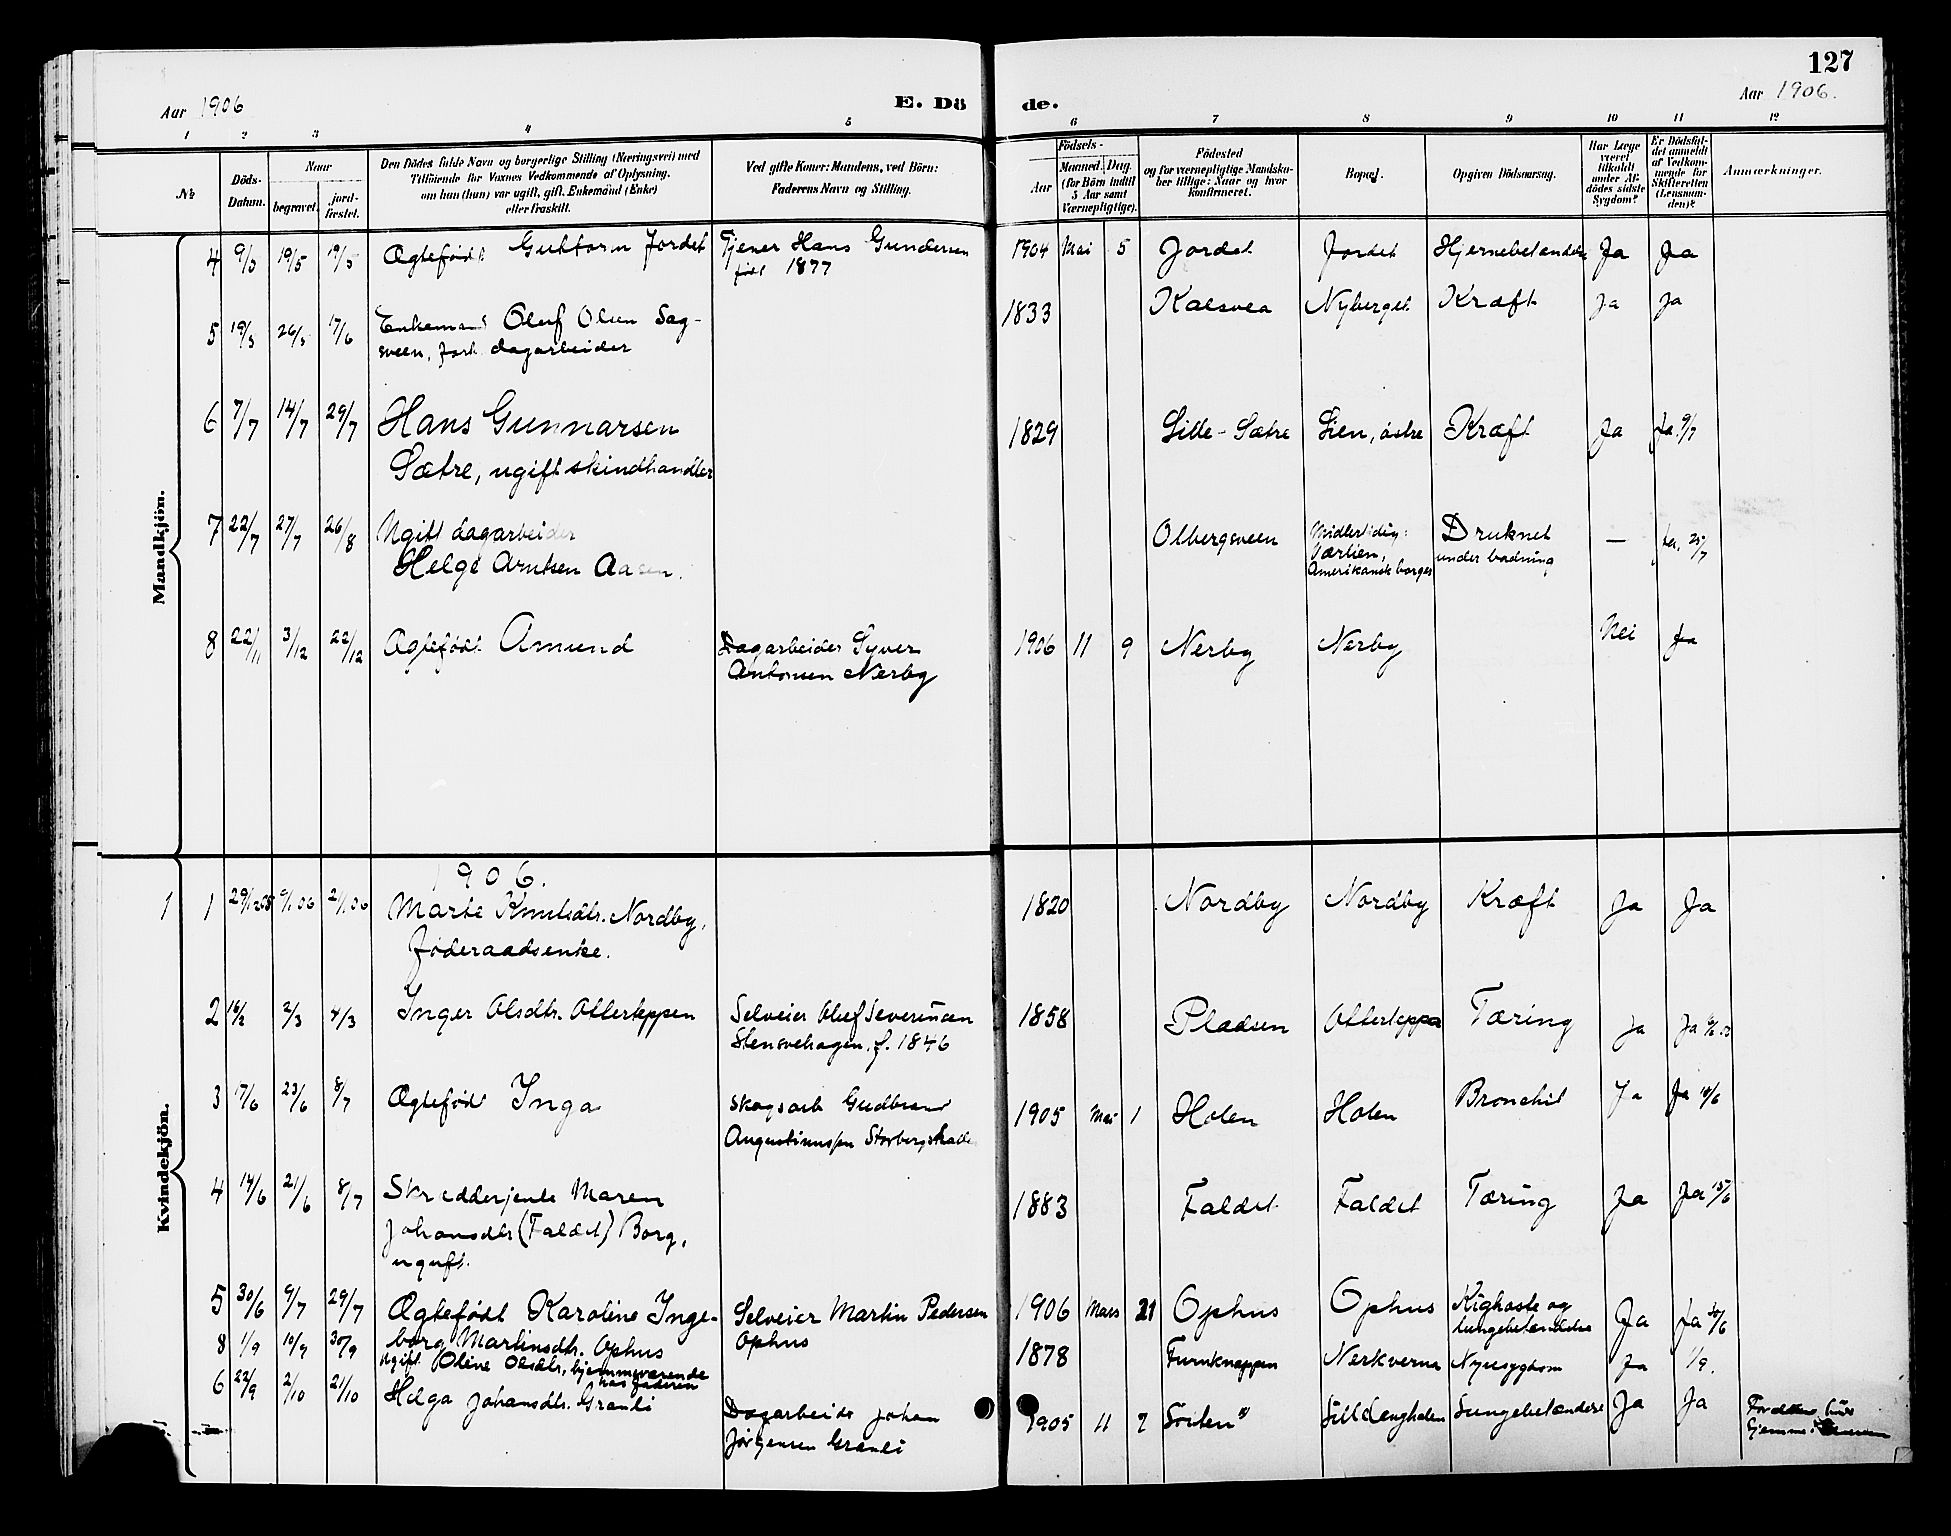 127
Aar 1906
E. Dö
de.
Aar 1906.
1 2 3 4 5 6 7 8 9 10 11 12
No
Döds-
Datum.
Naar
begravet.
jord-
fæstet.
Den Dödes fulde Navn og borgerlige Stilling (Næringsvei) med
Tilföiende for Voxnes Vedkommende af Oplysning,
om han (hun) var ugift, gift, Enkemand (Enke)
eller fraskilt.
Ved gifte Koner: Mandens, ved Börn:
Faderens Navn og Stilling.
Födsels-
Aar
Maaned. Dag.
(for Börn indtil
5 Aar samt
Værnepligtige).
Födested
og for værnepligtige Mandska-
ber tillige: Naar og hvor
konfirmeret.
Bopæl.
Opgiven Dödsaarsag.
Har Læge
været
tilkaldt
under Af-
dödes sidste
Sygdom?
Er Dödsfal-
det anmeldt
af Vedkom-
mende for
Skifteretten
(Lensman-
den)?
Anmærkninger.
Mandkjön.
4 19/5 19/5 Ægtefødt Guttorm Jordet Tjener Hans Gundersen 1904 Mai 5 Jordet Jordet Ja Ja
født 1877
5 19/5 26/5 17/6 Enkemand Oluf Olsen Sag- 1833 Kalsvea Nyberget Kræft Ja Ja
sveen, forh. dagarbeider
6 7/7 14/7 29/7 Hans Gunnarsen 1829 Lille-Sætre Lien, østre Kræft Ja Ja 9/7
Sætre, ugift skindhandler
7 22/7 27/7 26/8 Ugift dagarbeider Olbergsveen Midlertidig: Druknet — Ja, 25/7
Helge Arntsen Aasen. Værlien, under badning
Amerikansk borger
8 22/11 3/12 22/12 Ægtefødt Amund Dagarbeider Syver 1906 11 9 Nerby Nerby Nei Ja
Antonsen Nerby
Kvindekjön.
1906.
1 1 9/1 06 21/1 06 Marte Knutsdtr. Nordby, 1820 Nordby Nordby Kræft Ja Ja
føderaadsenke.
2 16/2 2/3 4/3 Inger Olsdtr. Atterteppen Selveier Oluf Severinsen 1858 Pladsen Tæring Ja Ja
Stensvehagen, f. 1846
3 17/6 23/6 8/7 Ægtefødt Inga Skogsarb Gudbrand 1905 Mai 1 Holen Holen Bronchit Ja Ja 18/6
4 14/6 21/6 8/7 Skrædderjente Maren 1883 Faldet Faldet Tæring Ja Ja 15/6
Johansdtr (Faldet) Borg,
ugift.
5 30/6 9/7 29/7 Ægtefødt Karoline Inge- Selveier Martin Pedersen 1906 Mars 21 Ophus Ophus Kighoste og Ja Ja 30/6
borg Martinsdtr. Ophus Ophus lungebetændelse
8 1/9 10/9 30/9 ugift Oline Olsdtr, hjemmeværende 1878 Furuknappen Nerkverna Nyresygdom Ja 1/9.
hos faderen
6 22/9 2/10 21/10 Helga Johansdtr. Granli Dagarbeider Johan 1905 11 2 Lungebetændelse Ja Ja
Jørgensen Granli